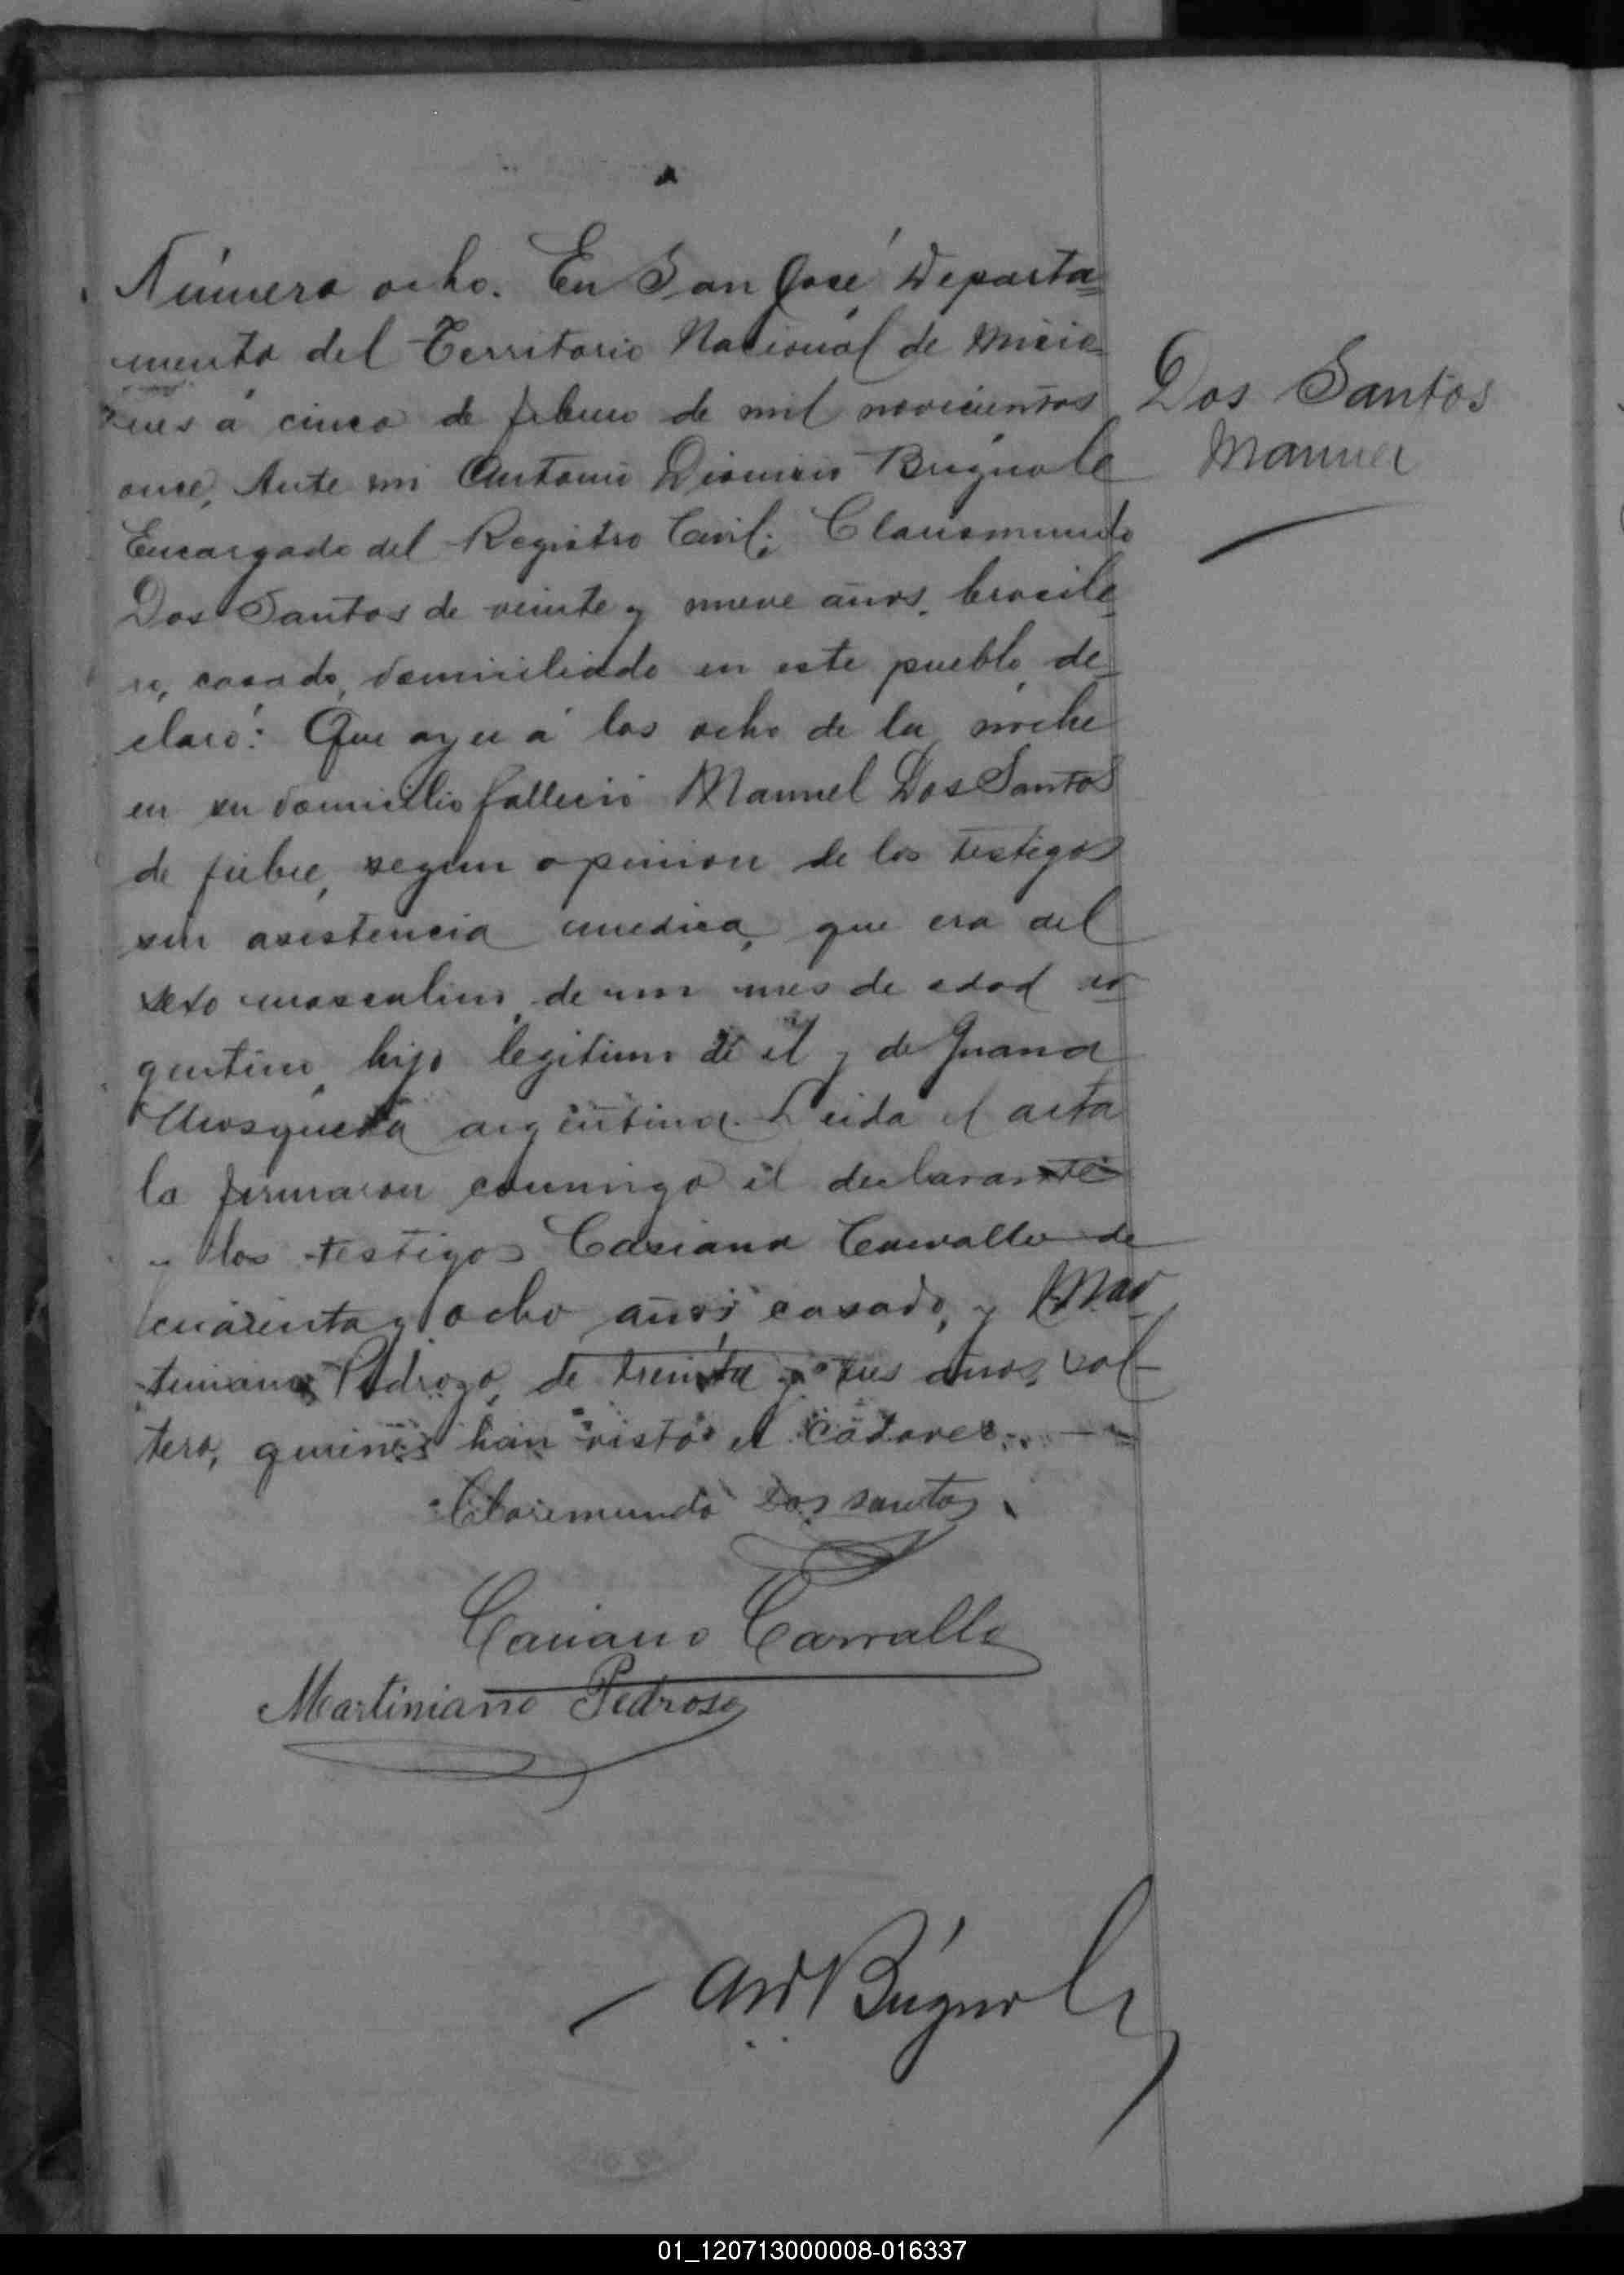 Número ocho. En San José Departa=
mento del Territorio Nacional de Misio=
nes á cinco de febrero de mil novecientos
once, Ante mi Antonio Dionicio Brignole
Encargado del Registro Civil; Claromundo
Dos Santos de veinte y nueve años, brasile_
ro, casado, domiciliado en este pueblo, de_
claró: Que ayer á las ocho de la noche
en su domicilio falleció Manuel Dos Santos
de fiebre, segun opinion de los testigos
sin asistencia medica, que era del
sexo masculino, de un mes de edad ar_
gentino, hijo legitimo de él y de Juana
Mosqueda argentina. Leida el acta
la firmaron conmigo el declarante
y los testigos Casiano Carvallo de
cuarenta y ocho años casado, y Mar_
tiniano Pedrozo, de treinta y tres años, sol_
tero, quienes han visto el cadaver.. —
Claremundo Dos santos
Casiano Carvallo
Martiniano Pedroso
AD Brignole
Dos Santos
Manuel
01_120713000008-016337